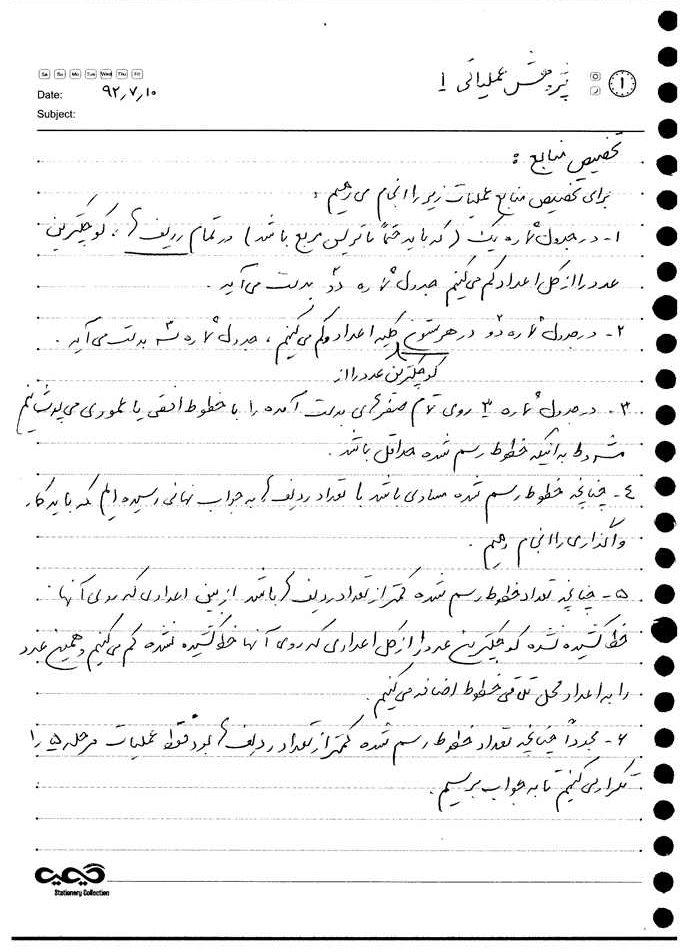 Sa Su Mo Tue Wed Thu Fri
پژوهش عملیاتی 1
1
Date: ۹۲,۷,۱۰
Subject:
تخصیص منابع :
برای تخصیص منابع عملیات زیر را انجام می دهیم :
۱- در جدول شماره یک ( که باید حتماً ماتریس مربع باشد ) در تمام ردیف ها ، کوچکترین
عدد را از کل اعداد کم می کنیم جدول شماره دو بدست می آید .
۲- در جدول شماره دو در هر ستون کلیه اعداد کم می کنیم ، جدول شماره سه بدست می آید .
کوچکترین عدد را از
۳- در جدول شماره ۳ روی تمام صفرهای بدست آمده را با خطوط افقی یا عمودی می پوشانیم
مشروط به اینکه خطوط رسم شده حداقل باشد .
٤- چنانچه خطوط رسم شده مساوی باشد با تعداد ردیف ها به جواب نهائی رسیده ایم که باید کار
واگذاری را انجام دهیم .
۵- چنانچه تعداد خطوط رسم شده کمتر از تعداد ردیف ها باشد از بین اعدادی که روی آنها
خط کشیده نشده کوچکترین عدد را از کل اعدادی که روی آنها خط کشیده نشده کم می کنیم و همین عدد
را به اعداد محل تلاقی خطوط اضافه می کنیم .
۶- مجدداً چنانچه تعداد خطوط رسم شده کمتر از تعداد ردیف ها بود فقط عملیات مرحله ۵ را
تکرار می کنیم تا به جواب برسیم .
Stationery Collection